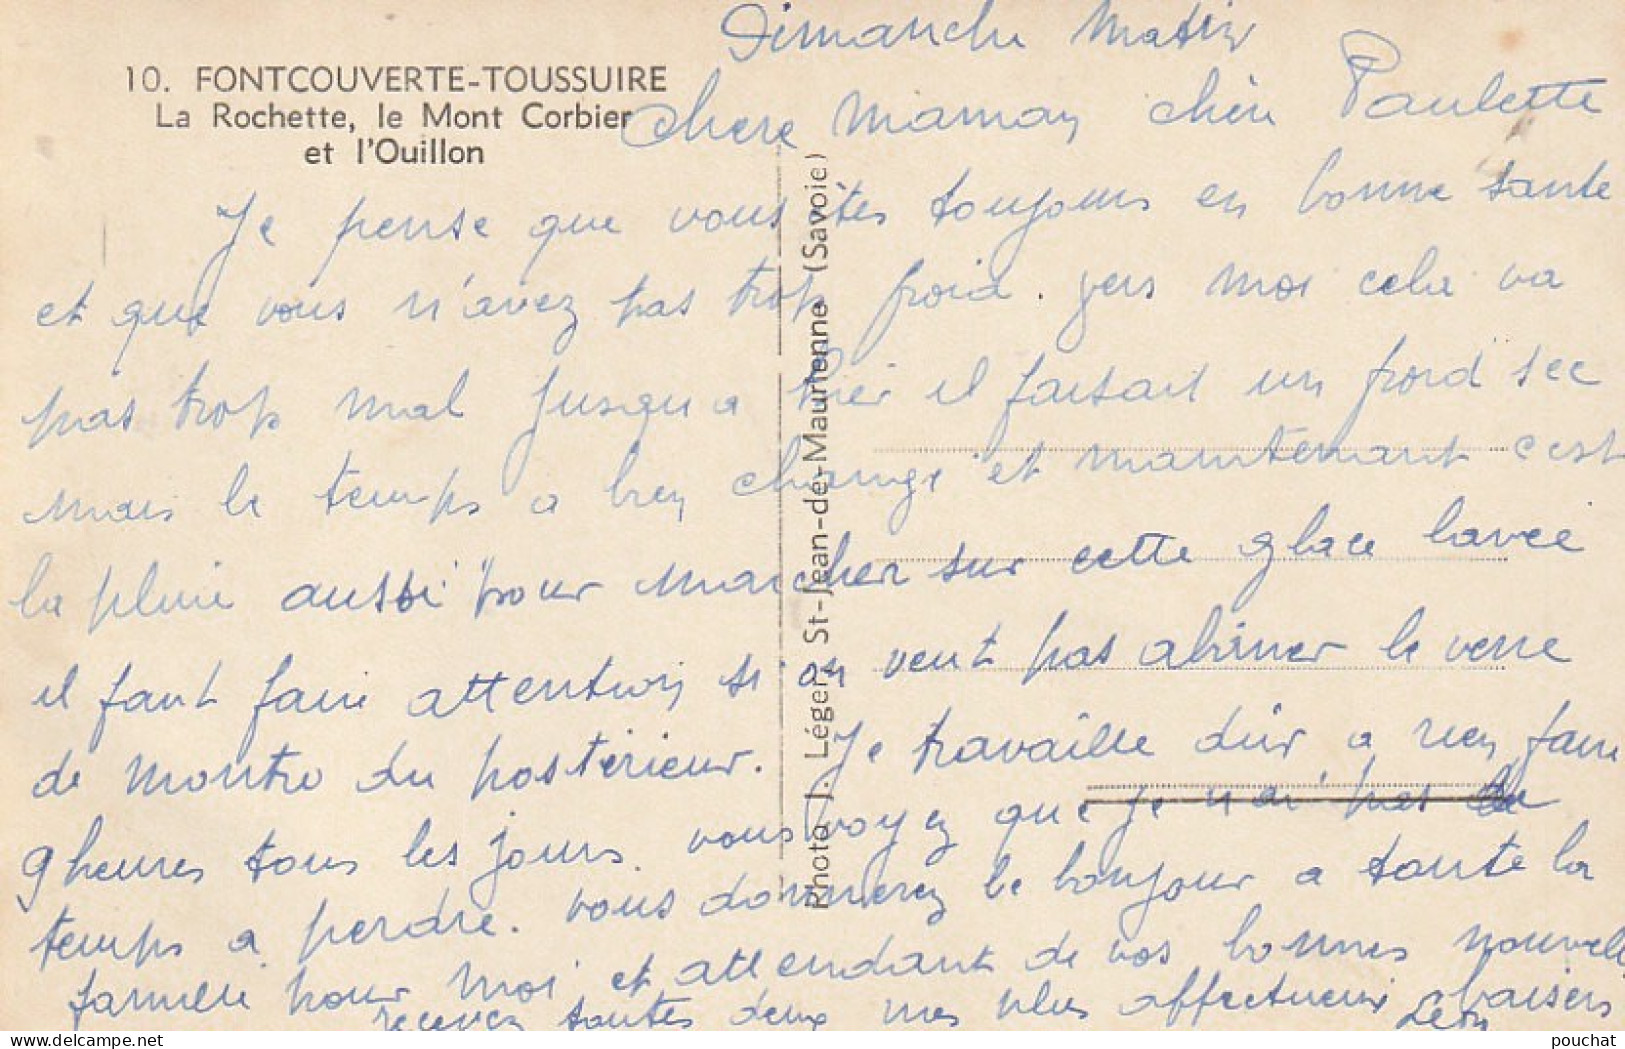 10. FONTCOUVERTE-TOUSSUIRE
La Rochette, le Mont Corbier
et l'Ouillon
Photo J. Léger, St-Jean-de-Maurienne (Savoie)
Dimanche Matin
chere Maman chère Paulette
Je pense que vous êtes toujours en bonne sante
et que vous n'avez pas trop froid. pers moi cela va
pas trop mal jusqu a hier il faisait un froid sec
mais le temps a bien change et maintenant c'est
la pluie aussi pour marcher sur cette glace lavée
il faut faire attention si on veut pas abimer le verre
de montre du postérieur. Je travaille dur a rien faire
9 heures tous les jours. vous voyez que je n'ai pas de
temps a perdre. vous donnerez le bonjour a toute la
famille pour moi et attendant de vos bonnes nouvelles
recevez toutes deux mes plus affectueux baisers
Léon
delcampe.net
pouchat